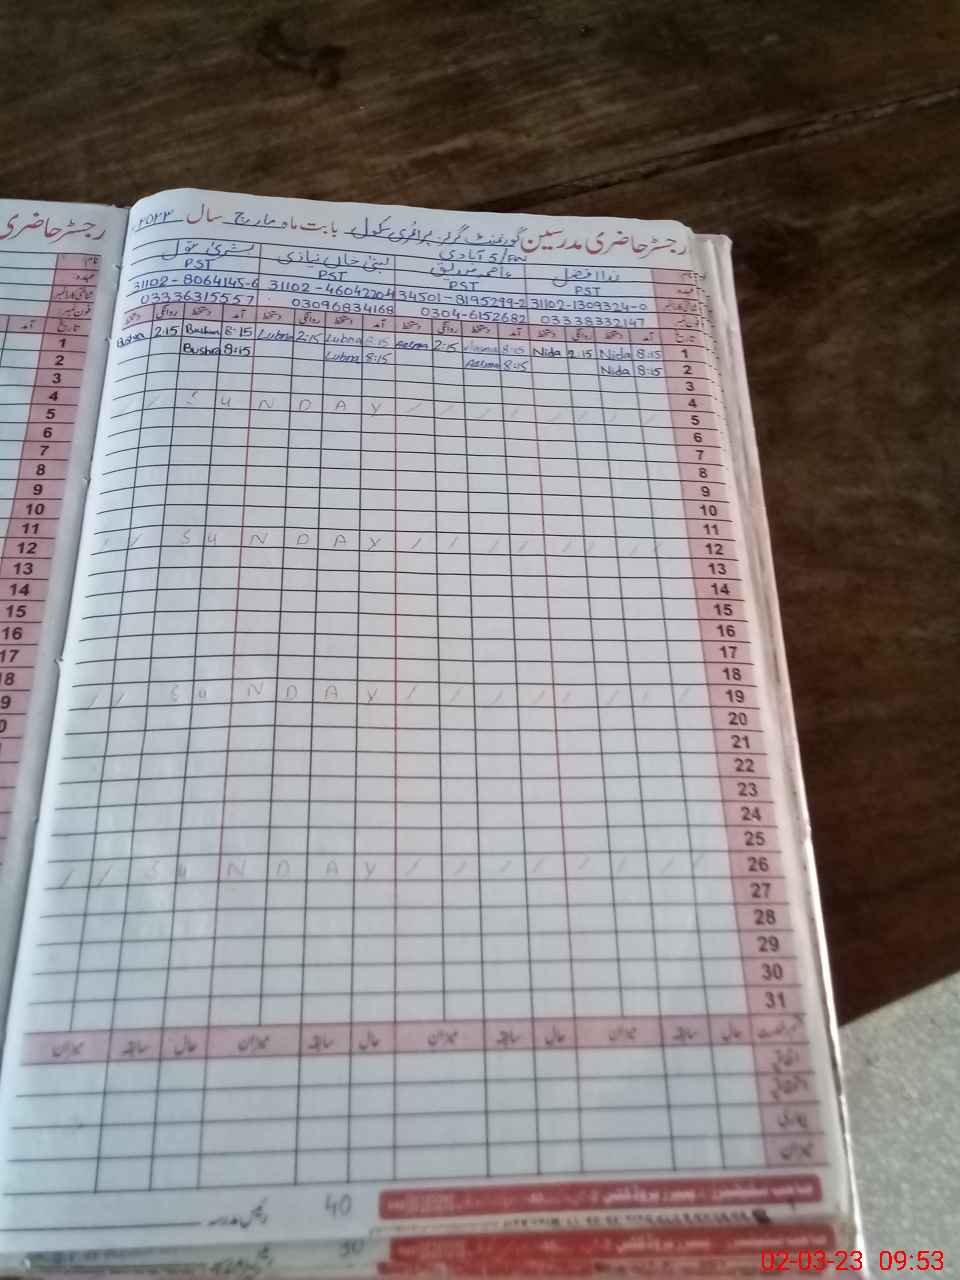 رجسٹر حاضری
رجسٹر حاضری مدرسین گورنمنٹ گرلز پرائمری سکول آبادی 5/FW بابت ماہ مارچ سال ۲۰۲۳
نام ندا افضل عاصمہ صدیق لبنیٰ خان نیازی بشریٰ بتول
عہدہ PST PST PST PST
31102-1309324-0 34501-8195299-2 31102-4604220-4 31102-8064145-6
فون نمبر 03338332147 0304-6152682 03096834168 03336315557
تاریخ آمد دستخط روانگی دستخط آمد دستخط روانگی دستخط آمد دستخط روانگی دستخط آمد دستخط روانگی دستخط
1 8:15 Nida 2:15 Nida 8:15 Aasma 2:15 Aasma 8:15 Lubna 2:15 Lubna 8:15 Bushra 2:15 Bushra
2 8:15 Nida 8:15 Aasma 8:15 Lubna 8:15 Bushra
3
4
5 SUNDAY
6
7
8
9
10
11
12 SUNDAY
13
14
15
16
17
18
19 SUNDAY
20
21
22
23
24
25
26 SUNDAY
27
28
29
30
31
حال سابقہ میزان حال سابقہ میزان حال سابقہ میزان حال سابقہ میزان
اتفاقیہ
بیماری
میزان
40 رئیس مدرسہ
02-03-23 09:53